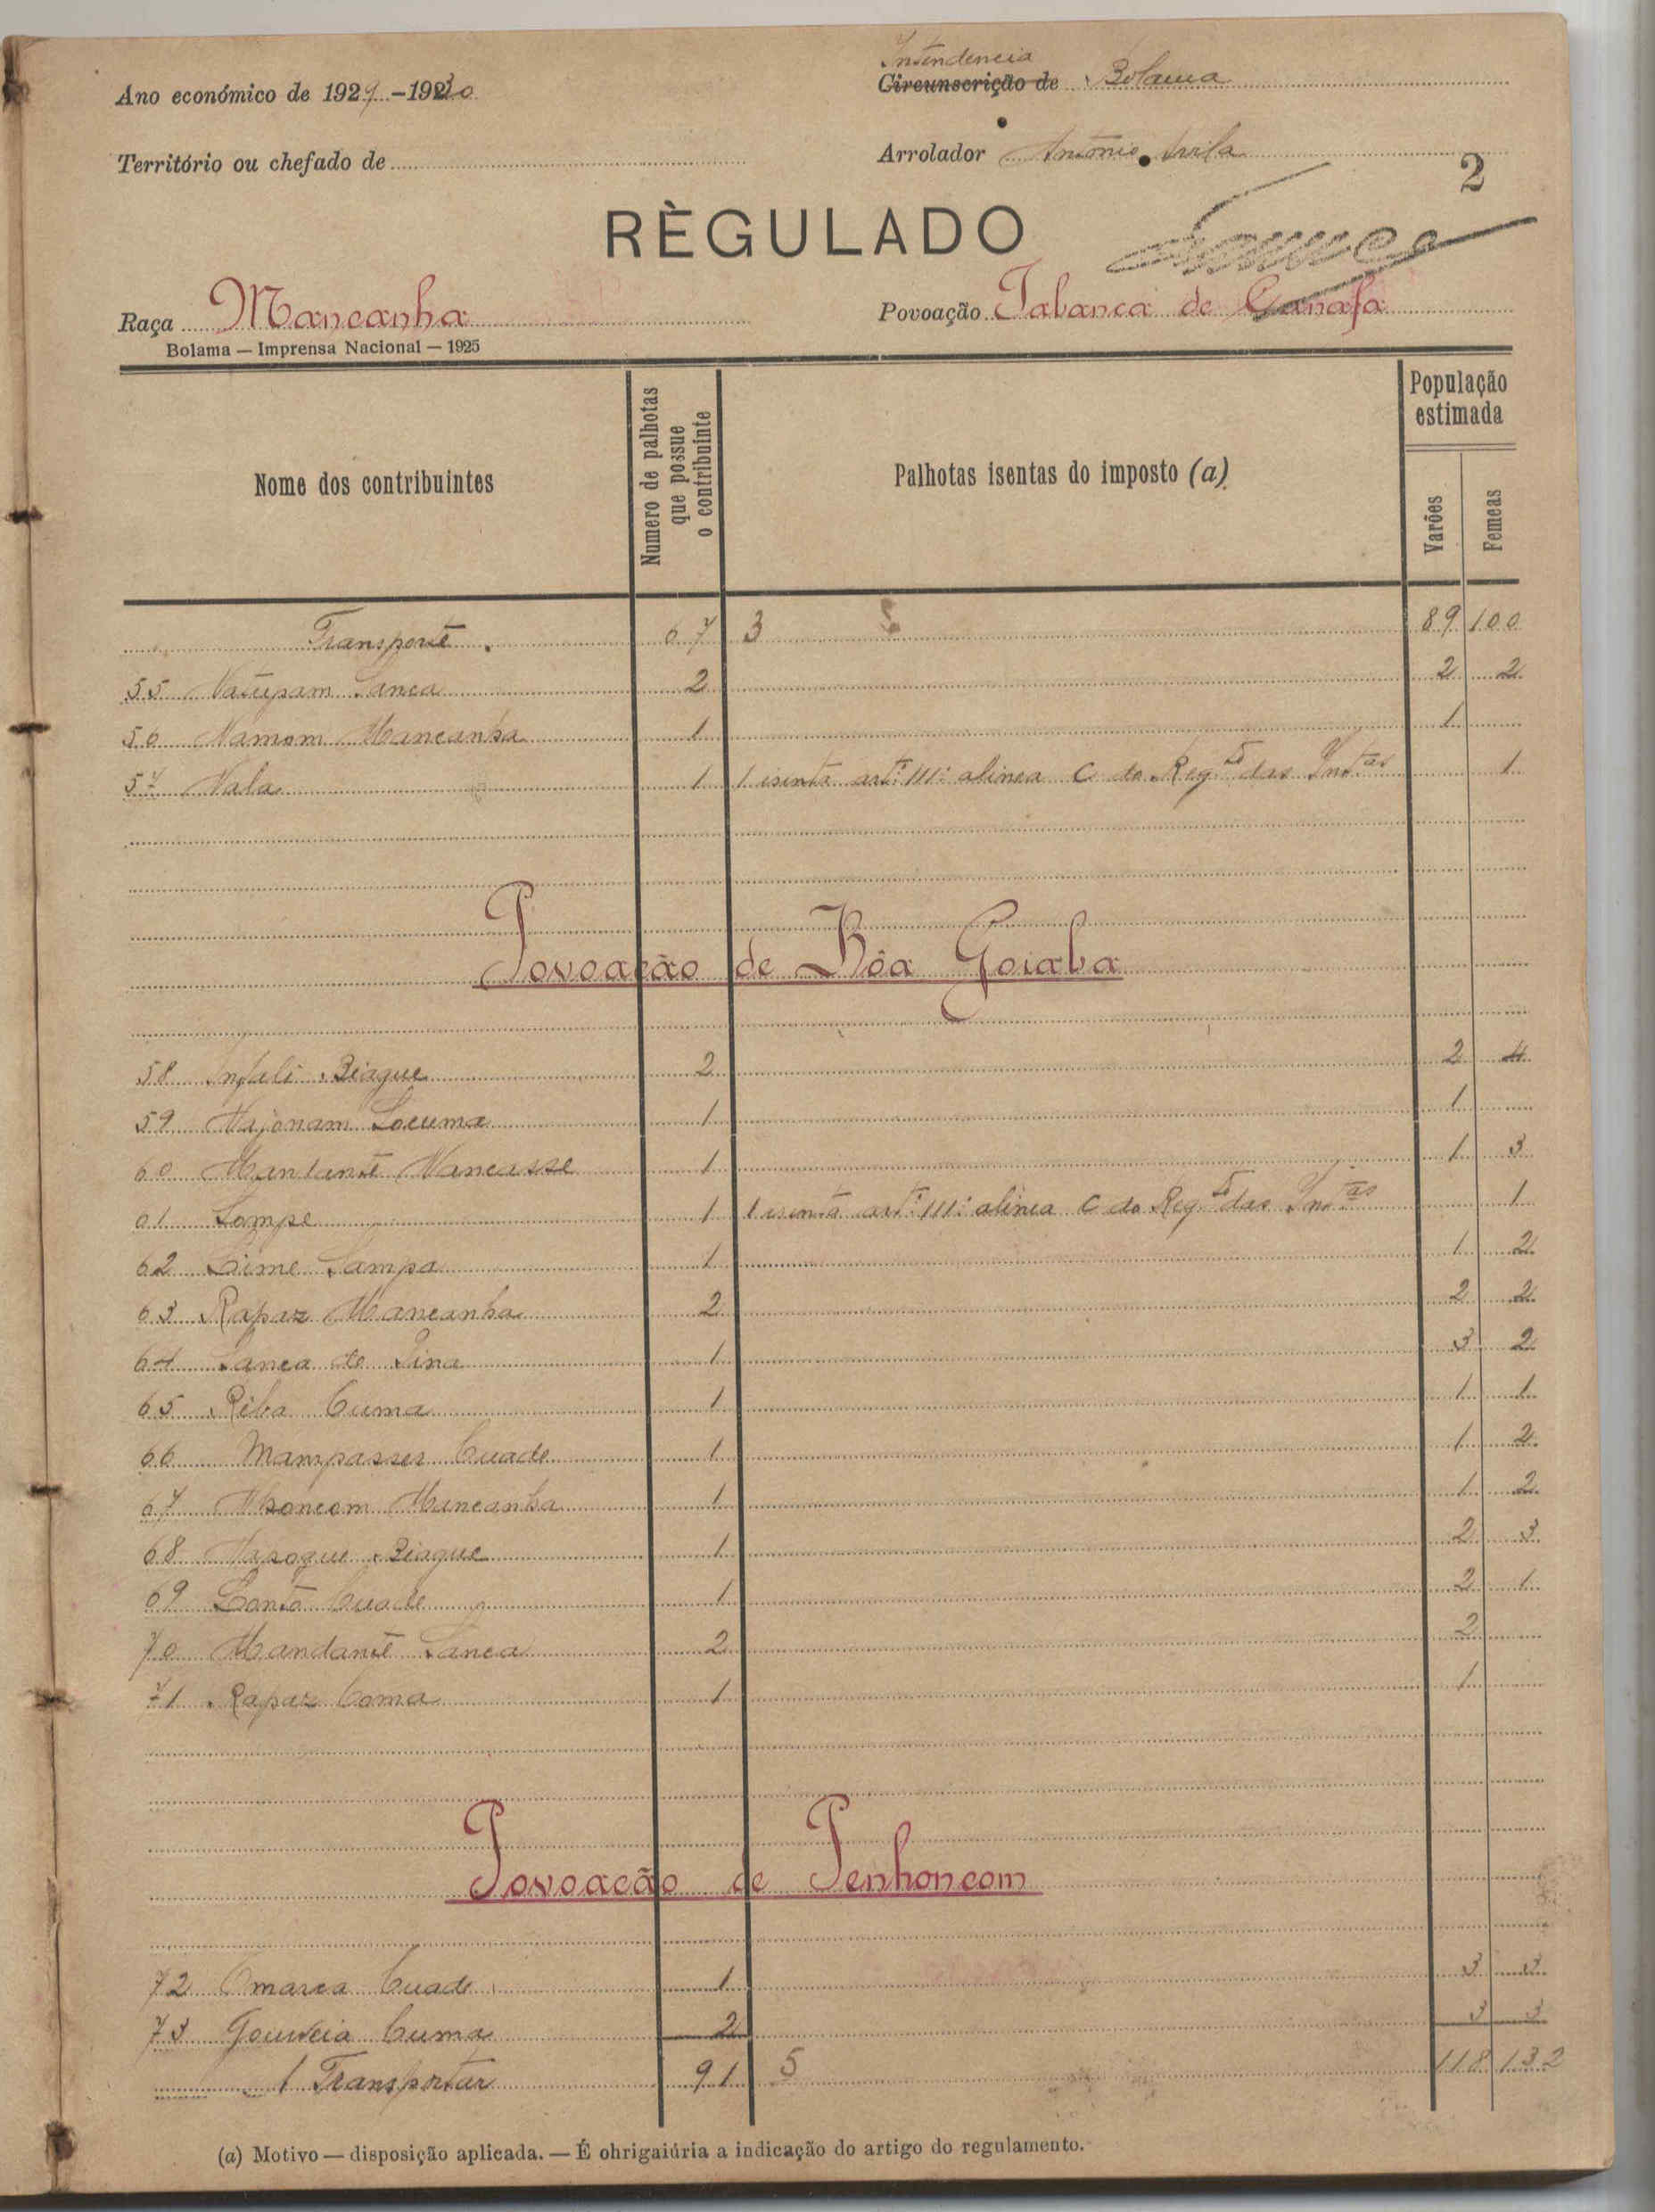 Ano económico de 1929-1930
Intendencia
Circunscrição de Bolama
Território ou chefado de
Arrolador António Avila
2
RÈGULADO
Raça Mancanha
Povoação Tabanca de Ganafa
Bolama — Imprensa Nacional — 1925
Nome dos contribuintes
Numero de palhotas que possue o contribuinte
Palhotas isentas do imposto (a)
População estimada
Varões
Femeas
Transporte 67 3 89 100
55 Natupam Lanca 2 2 2
56 Namom Mancanha 1 1
57 Nala 1 1 isenta artº 111º alinea C do Regto das Intas 1
Povoação de Bôa Goiaba
58 Infali Biague 2 2 4
59 Najonam Locuma 1 1
60 Mantante Nancasse 1 1 3
61 Lompe 1 1 isenta artº 111º alinea C do Regto das Intas 1
62 Bime Sampa 1 1 2
63 Rapaz Mancanha 2 2 2
64 Lanca de Pina 1 3 2
65 Riba Cuma 1 1 1
66 Mampasser Cuade 1 1 2
67 Moncom Mancanha 1 1 2
68 Nasogue Biague 1 2 3
69 Cuade 1 2 1
70 Mandante Lanca 2 2
71 Rapaz Coma 1 1
Povoacão de Penhoncom
72 Omarca Cuade 1 3 3
73 Gouveia Cuma 2 3 3
A Transportar 91 5 118 132
(a) Motivo — disposição aplicada. — É ohrigaiúria a indicação do artigo do regulamento.